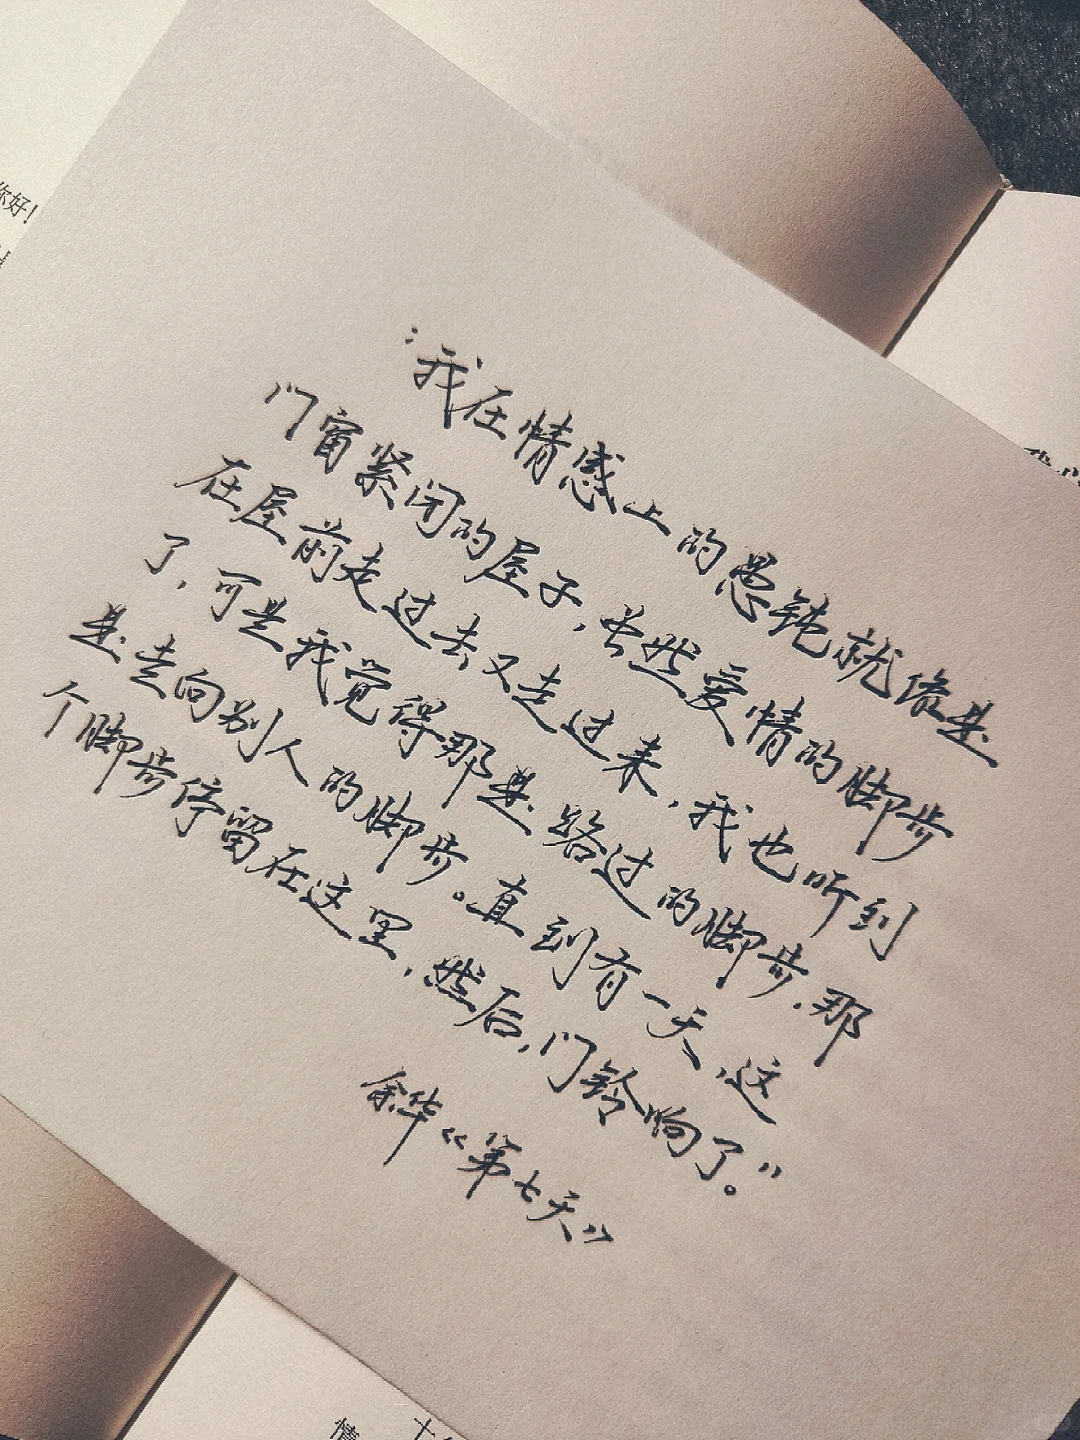 你好!
“我在情感上的愚钝就像是
门窗紧闭的屋子,虽然爱情的脚步
在屋前走过去又走过来,我也听到
了,可是我觉得那是路过的脚步,那
是走向别人的脚步。直到有一天,这
个脚步停留在这里,然后,门铃响了。”
余华《第七天》
情